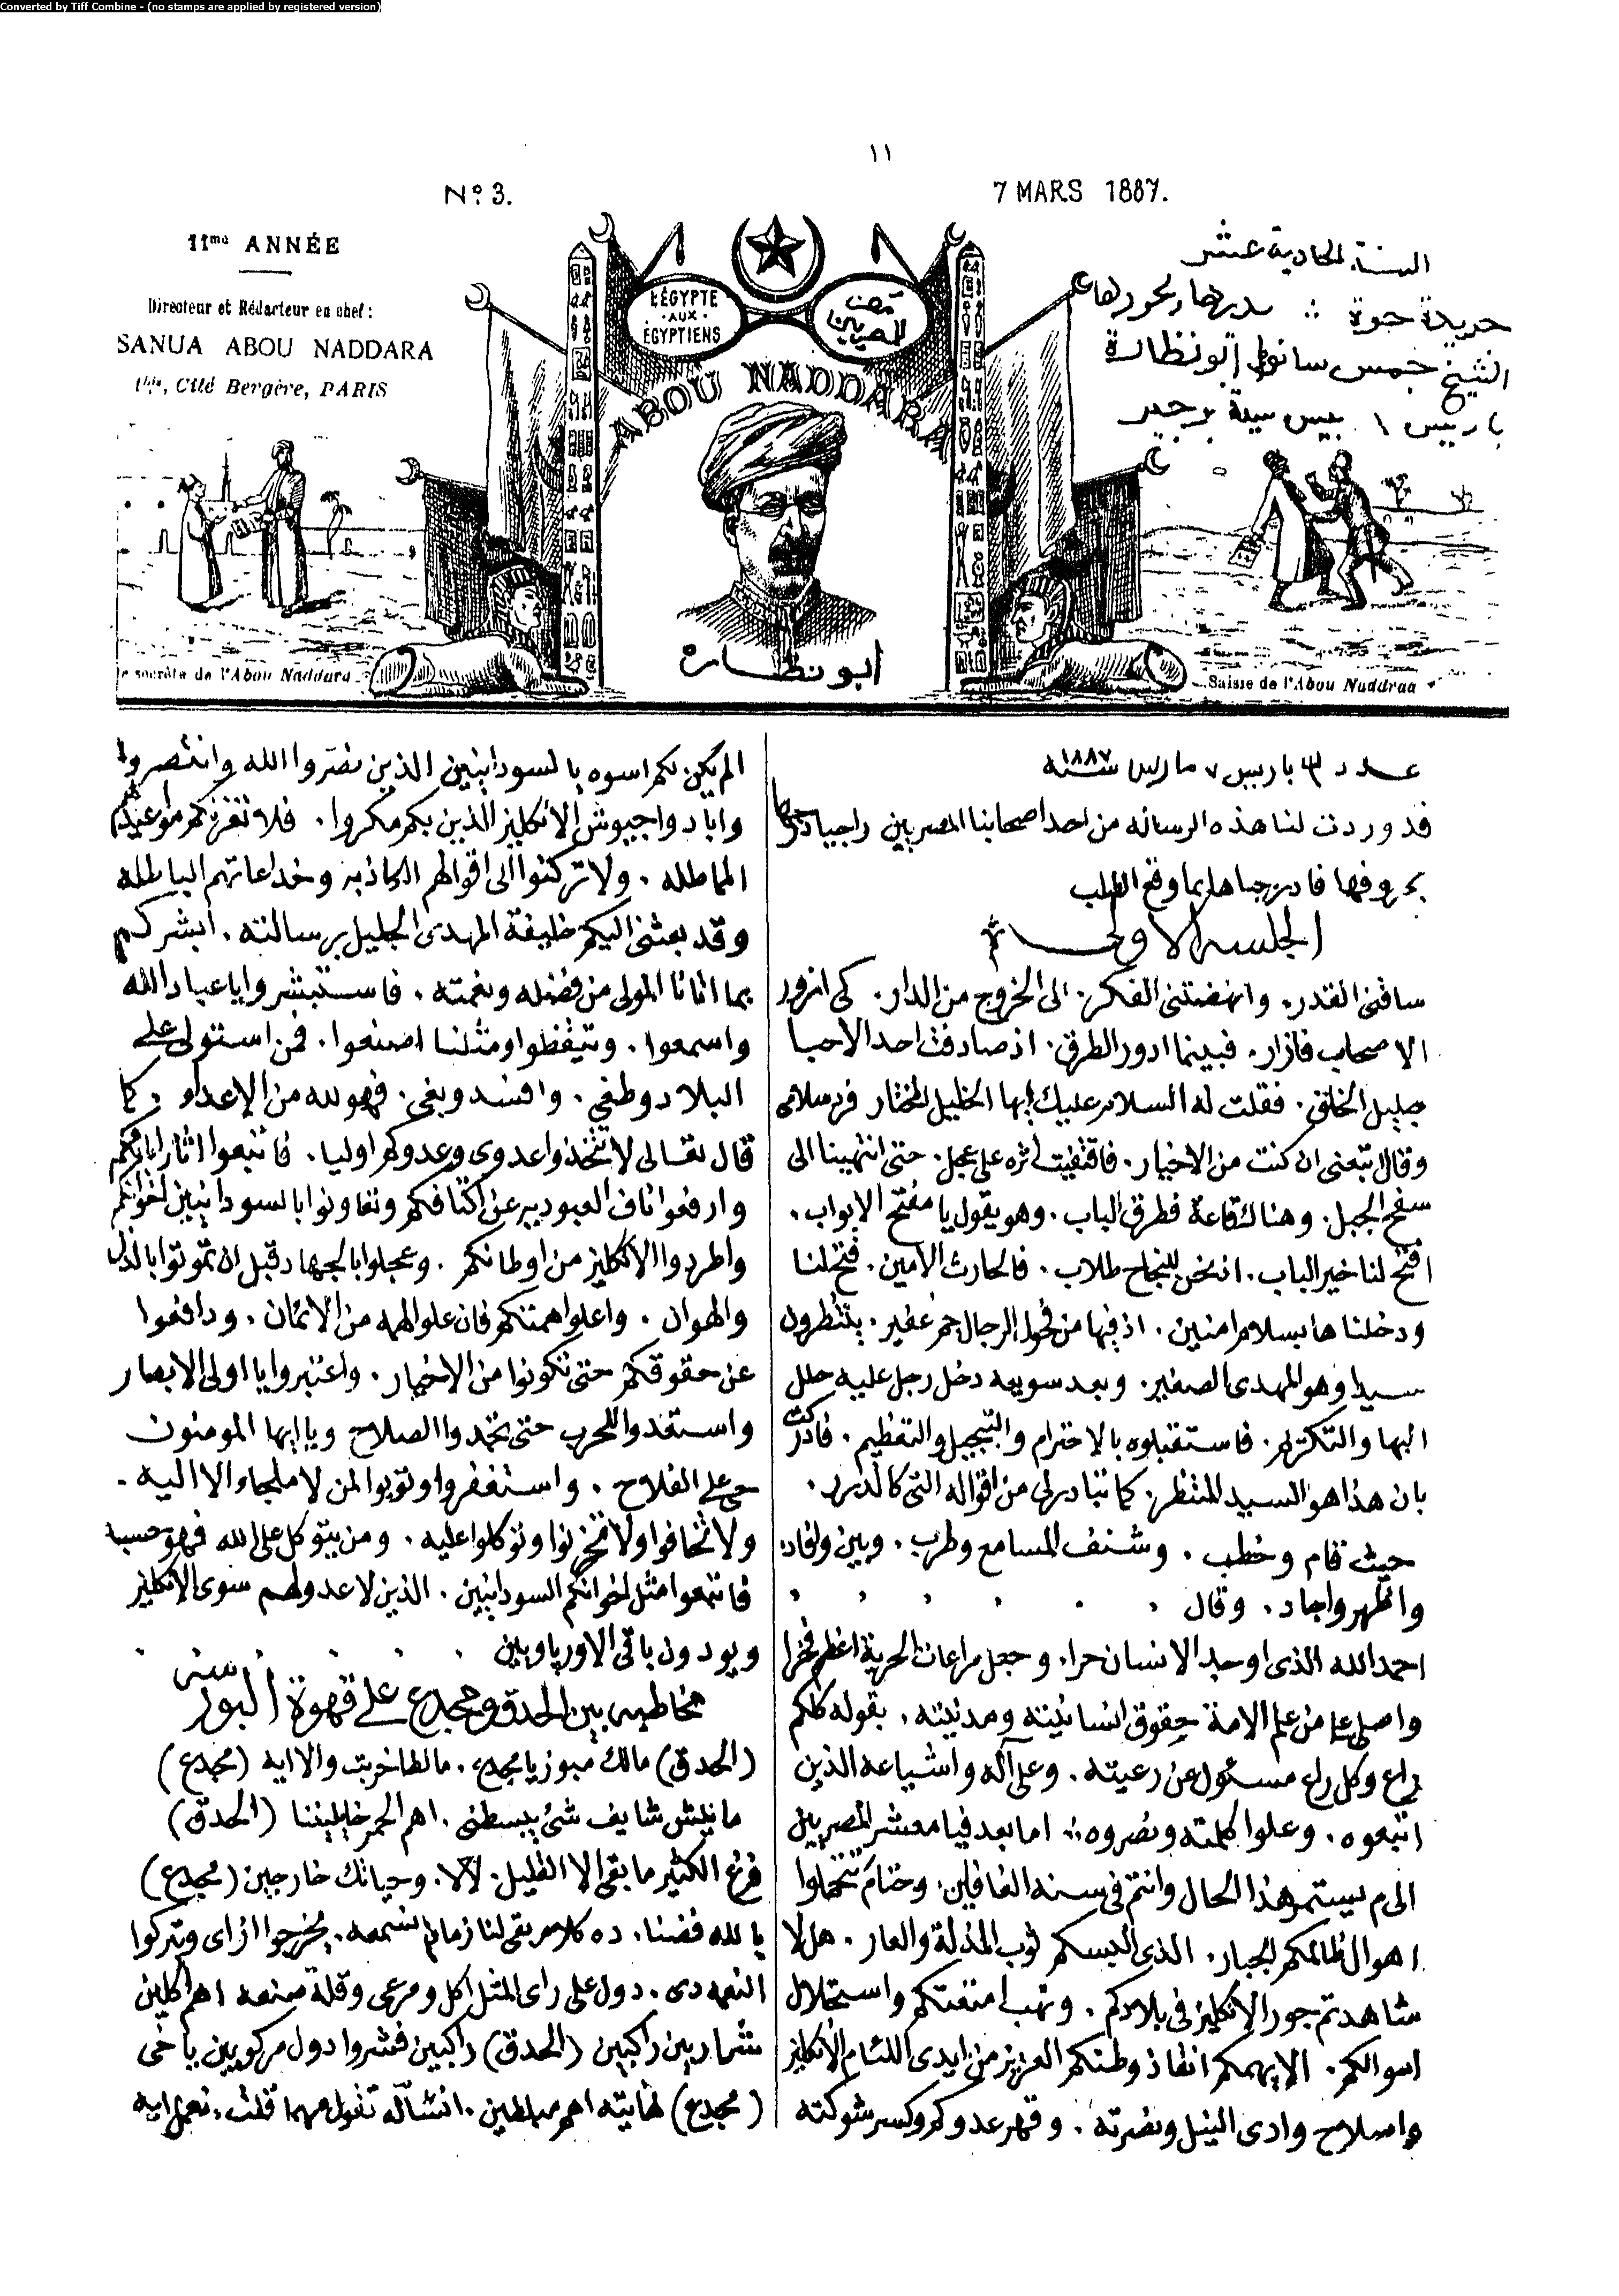 Converted by Tiff Combine - (no stamps are applied by registered version)
١١
Nº 3.
7 MARS 1887.
11me ANNÉE
Directeur et Rédacteur en chef:
SANUA ABOU NADDARA
Cité Bergère, PARIS
L'ÉGYPTE
AUX
ÉGYPTIENS
مصر
للمصريين
ABOU NADDARA
السنة الحادية عشر
جريدة حرة مديرها ومحررها
الشيخ جمس سانوا ابو نظارة
باريس ١ بيس سيتة برجير
ابو نظارة
secrète de l'Abou Naddara
Saisie de l'Abou Naddraa
عدد ٣ باريس ٧ مارس سنة ١٨٨٧
قد وردت لنا هذه الرساله من احد اصحابنا المصريين راجيا درجها
بحروفها فادرجناها بما وقع الطلب
الجلسه الاولى
ساقنى القدر. وانهضتنى الفكر. الى الخروج من الدار. كى ازور
الاصحاب فازار. فبينما ادور الطرق. اذ صادفت احد الاحبا
جليل الخلق. فقلت له السلام عليك ايها الخليل المختار فرد سلامى
وقال تبعنى ان كنت من الاخيار. فاقتفيت اثره على عجل. حتى انتهينا الى
سفح الجبل. وهناك قاعة فطرق الباب. وهو يقول يا مفتح الابواب.
افتح لنا خير الباب. انحن للنجاح طلاب. فالحارث الامين. فتح لنا
ودخلنا ها بسلام امنين. اذ فيها من فحول الرجال جم غفير. ينتظرون
سيدا وهو المهدى الصغير. وبعد سويعه دخل رجل عليه حلل
البها والتكريم. فاستقبلوه بالاحترام والتبجيل والتعظيم. فادركت
بان هذا هو السيد المنتظر. كما تبادر لى من اقواله التى كالدرر.
حيث قام وخطب. وشنف المسامع وطرب. وبين وافاد.
واظهر واجاد. وقال
احمد الله الذى اوجد الانسان حرا. وجعل مراعات الحرية اعظم فخرا
واصلى على من علم الامة حقوق انسانيته ومدنيته. بقوله كلكم
راع وكل راع مسئول عن رعيته. وعلى آله واشياعه الذين
اتبعوه. وعلوا كلمته ونصروه: اما بعد فيا معشر المصريين
الى م يستمر هذا الحال وانتم فى سنه الغافلين. وحتام تتحملوا
اهوال ظالمكم الجبار. الذى البسكم ثوب المذلة والعار. هل لا
شاهدتم جور الانكليز فى بلادكم. ونهب امتعتكم واستحلال
اموالكم. الا يهمكم انقاذ وطنكم العزيز من ايدى اللئام الانكليز
واصلاح وادى النيل ونضرته. وقهر عدوكم وكسر شوكته
الم يكن لكم اسوه بالسودانيين الذين نصروا الله وانتصروا
وابادوا جيوش الانكليز الذين بكم مكروا. فلا تغرنكم مواعيدهم
المماطله. ولا تركنوا الى اقوالهم الكاذبه وخداعاتهم الباطله
وقد بعثنى اليكم خليفة المهدى الجليل برسالته. ابشركم
بما اتانا المولى من فضله ونعمته. فاستبشروا يا عباد الله
واسمعوا. وتيقظوا ومثلنا اصنعوا. فمن استولى على
البلاد وطغى. وافسد وبغى. فهو لله من الاعداء. كما
قال تعالى لا تتخذوا عدوى وعدوكم اوليا. فاتبعوا اثار ابائكم
وارفعوا العبوديه عن اكتافكم وتعاونوا بالسودانيين اخوانكم
واطردوا الانكليز من اوطانكم. وعجلوا بالجهاد قبل ان تموتوا بالذل
والهوان. واعلوا همتكم فان علو الهمه من الايمان. ودافعوا
عن حقوقكم حتى تكونوا من الاخيار. واعتبروا يا اولى الابصار
واستعدوا للحرب حتى تجدوا الصلاح ويا ايها المومنون
حى على الفلاح. واستغفروا وتوبوا لمن لا ملجاء الا اليه.
ولا تخافوا ولا تحزنوا وتوكلوا عليه. ومن يتوكل على الله فهو حسبه
فاتبعوا مثل اخوانكم السودانيين. الذين لا عدو لهم سوى الانكليز
ويودون باقى الاورپاويين
مخاطبه بين الحدق ومجدع على قهوة البورسه
(الحدق) مالك مبوز يا مجدع. مالطا خربت والا ايه (مجدع)
مانيش شايف شئ يبسطنى. اهم الحمر خايليننا (الحدق)
فرغ الكثير ما بقى الا القليل. لا لا. وحياتك خارجين (مجدع)
يا لله فضنا. ده كلام بقى لنا زمان نسمعه. يخرجوا ازاى ويتركوا
النعمه دى. دول على راى المثل اكل ومرعى وقلة صنعه اهم اكلين
شاربين راكبين (الحدق) راكبين فشروا دول مركوبين يا خى
(مجدع) لغايته اهم مبلطين. انشالله تقول مهما قلت. نعمل ايه